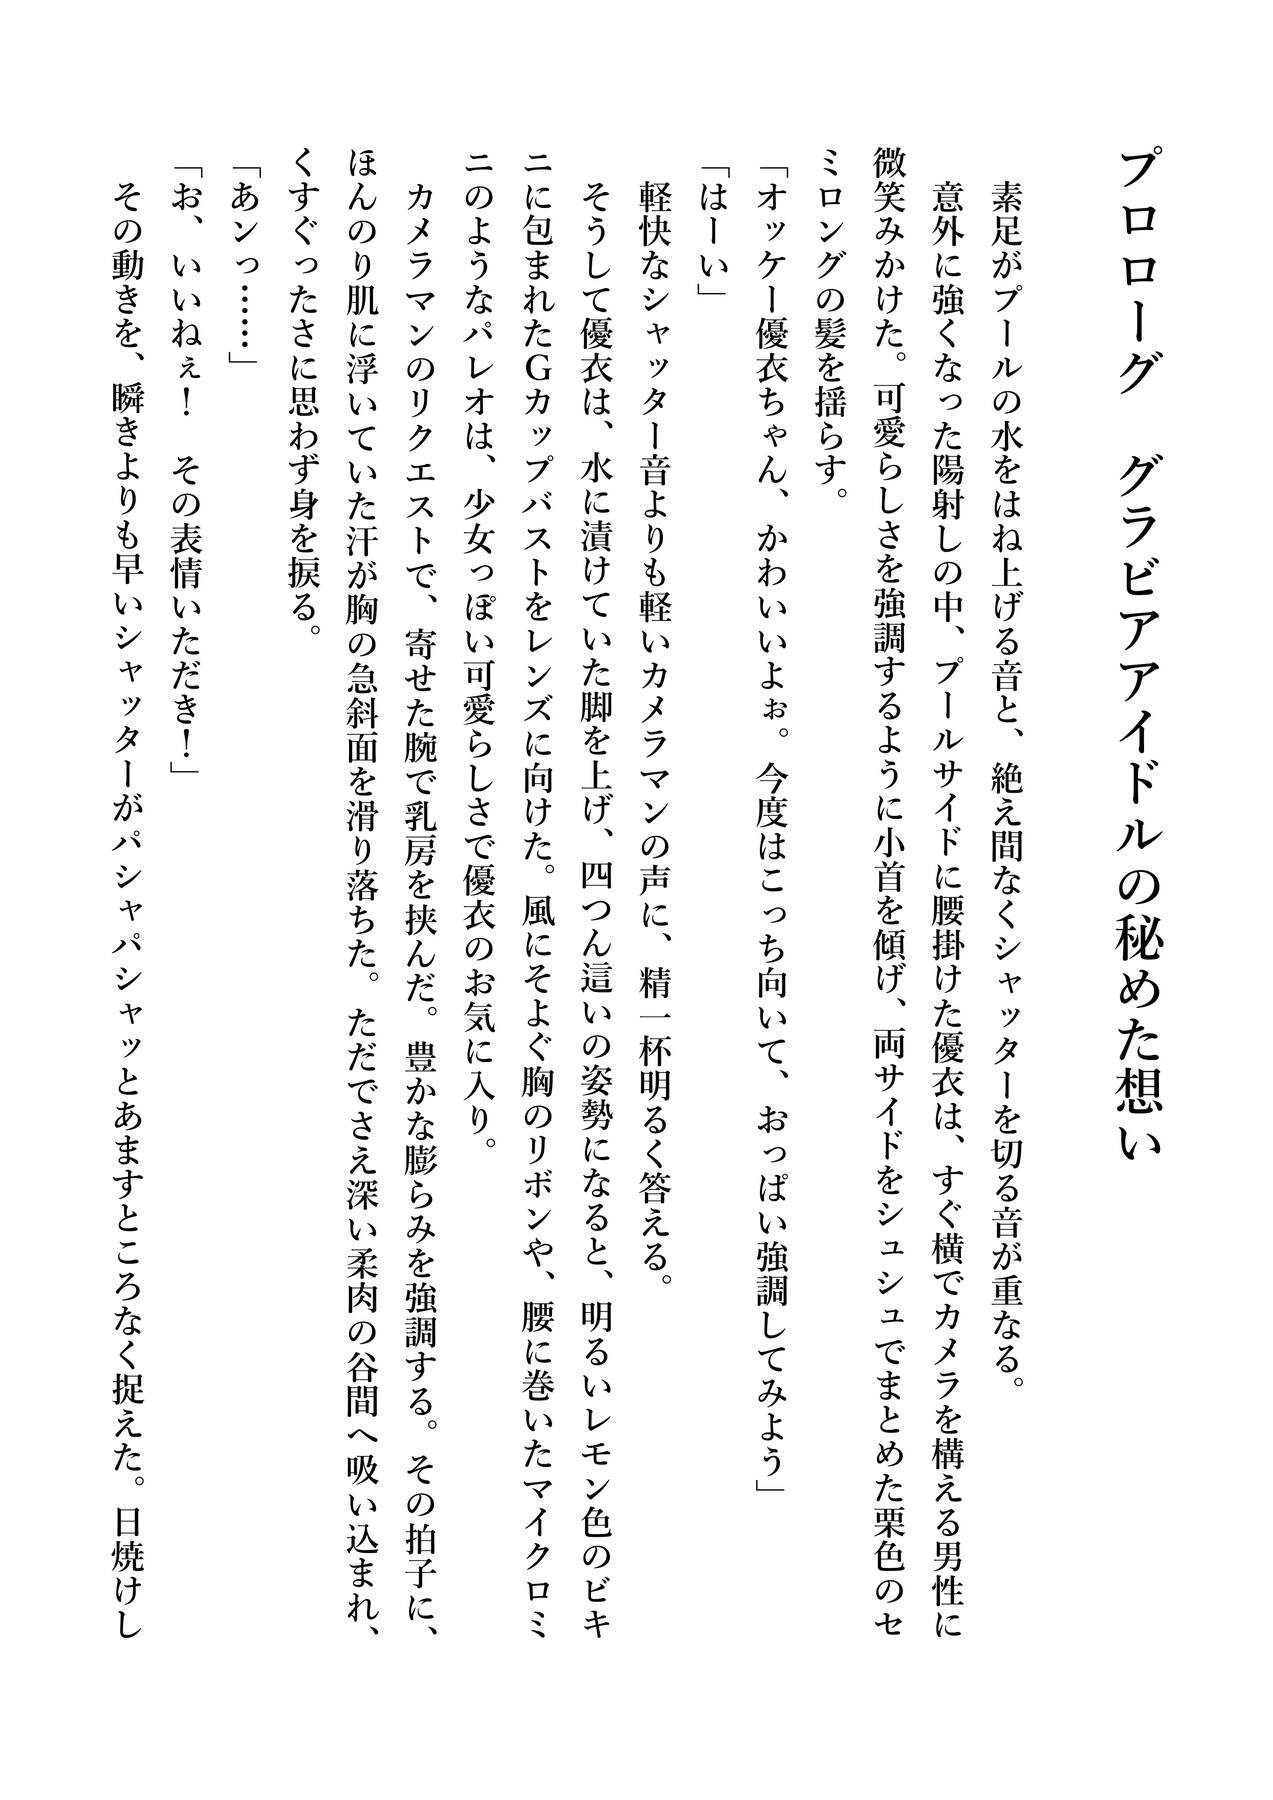 プロローグ　グラビアアイドルの秘めた想い
　素足がプールの水をはね上げる音と、絶え間なくシャッターを切る音が重なる。
　意外に強くなった陽射しの中、プールサイドに腰掛けた優衣は、すぐ横でカメラを構える男性に
微笑みかけた。可愛らしさを強調するように小首を傾げ、両サイドをシュシュでまとめた栗色のセ
ミロングの髪を揺らす。
「オッケー優衣ちゃん、かわいいよぉ。今度はこっち向いて、おっぱい強調してみよう」
「はーい」
　軽快なシャッター音よりも軽いカメラマンの声に、精一杯明るく答える。
　そうして優衣は、水に漬けていた脚を上げ、四つん這いの姿勢になると、明るいレモン色のビキ
ニに包まれたＧカップバストをレンズに向けた。風にそよぐ胸のリボンや、腰に巻いたマイクロミ
ニのようなパレオは、少女っぽい可愛らしさで優衣のお気に入り。
　カメラマンのリクエストで、寄せた腕で乳房を挟んだ。豊かな膨らみを強調する。その拍子に、
ほんのり肌に浮いていた汗が胸の急斜面を滑り落ちた。ただでさえ深い柔肉の谷間へ吸い込まれ、
くすぐったさに思わず身を捩る。
「あンっ……」
「お、いいねぇ！　その表情いただき！」
　その動きを、瞬きよりも早いシャッターがパシャパシャッとあますところなく捉えた。日焼けし